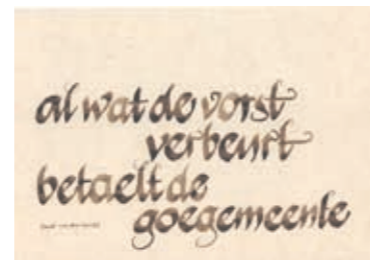 al wat de vorst
verbeurt
betaelt de
goegemeente